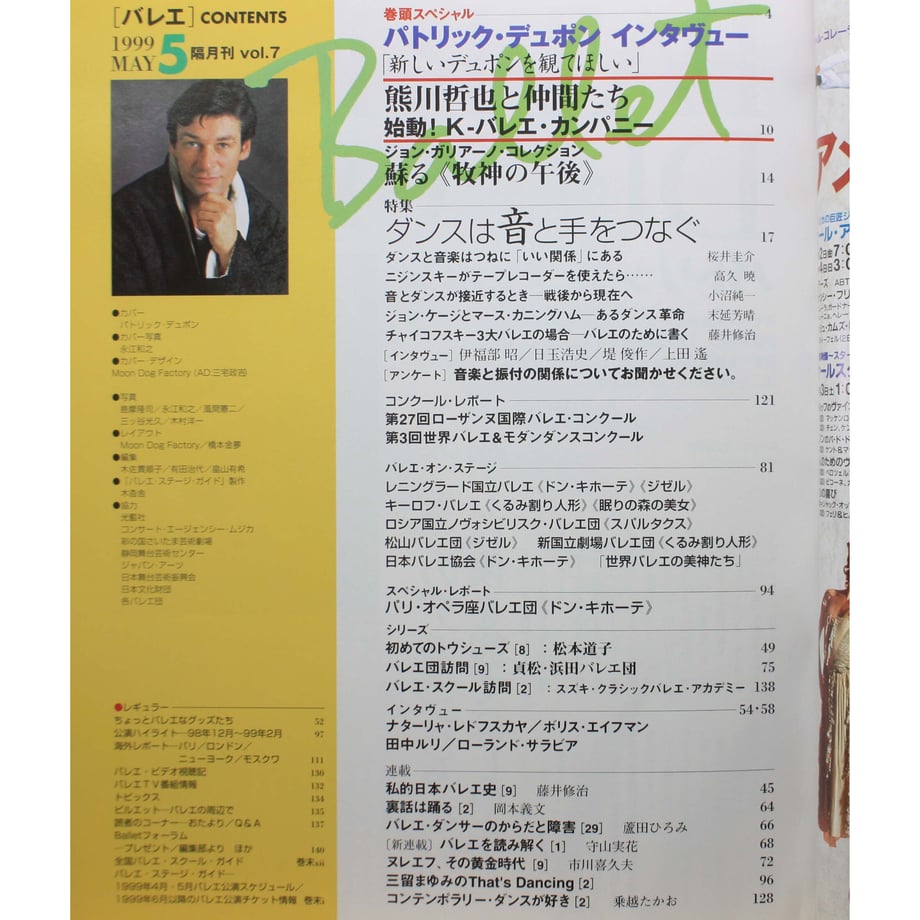 [バレエ] CONTENTS
1999 MAY 5 隔月刊 vol.7
Ballet
●カバー
パトリック・デュポン
●カバー写真
永江和之
●カバー・デザイン
Moon Dog Factory (AD.三宅政吉)
●写真
鹿摩隆司／永江和之／風間憲二／
三ッ谷光久／木村洋一
●レイアウト
Moon Dog Factory／橋本金夢
●編集
木佐貫順子／有田治代／畠山有希
●「バレエ・ステージ・ガイド」製作
木杳舎
●協力
光藍社
コンサート・エージェンシー・ムジカ
彩の国さいたま芸術劇場
静岡舞台芸術センター
ジャパン・アーツ
日本舞台芸術振興会
日本文化財団
各バレエ団
●レギュラー
ちょっとバレエなグッズたち 52
公演ハイライト―98年12月〜99年2月 97
海外レポート―パリ／ロンドン／
ニューヨーク／モスクワ 111
バレエ・ビデオ視聴記 130
バレエTV番組情報 132
トピックス 134
ピルエット―バレエの周辺で 135
読者のコーナー―おたより／Q&A 137
Balletフォーラム
―プレゼント／編集部より ほか 140
全国バレエ・スクール・ガイド 巻末xii
バレエ・ステージ・ガイド―
1999年4月・5月バレエ公演スケジュール／
1999年6月以降のバレエ公演チケット情報 巻末i
巻頭スペシャル 4
パトリック・デュポン インタヴュー
「新しいデュポンを観てほしい」
熊川哲也と仲間たち
始動! K-バレエ・カンパニー 10
ジョン・ガリアーノ・コレクション
蘇る《牧神の午後》 14
特集
ダンスは音と手をつなぐ 17
ダンスと音楽はつねに「いい関係」にある 桜井圭介
ニジンスキーがテープレコーダーを使えたら…… 高久 暁
音とダンスが接近するとき―戦後から現在へ 小沼純一
ジョン・ケージとマース・カニングハム―あるダンス革命 末延芳晴
チャイコフスキー3大バレエの場合―バレエのために書く 藤井修治
[インタヴュー] 伊福部 昭／日玉浩史／堤 俊作／上田 遙
[アンケート] 音楽と振付の関係についてお聞かせください。
コンクール・レポート 121
第27回ローザンヌ国際バレエ・コンクール
第3回世界バレエ&モダンダンスコンクール
バレエ・オン・ステージ 81
レニングラード国立バレエ《ドン・キホーテ》《ジゼル》
キーロフ・バレエ《くるみ割り人形》《眠りの森の美女》
ロシア国立ノヴォシビリスク・バレエ団《スパルタクス》
松山バレエ団《ジゼル》 新国立劇場バレエ団《くるみ割り人形》
日本バレエ協会《ドン・キホーテ》 「世界バレエの美神たち」
スペシャル・レポート 94
パリ・オペラ座バレエ団《ドン・キホーテ》
シリーズ
初めてのトウシューズ [8] : 松本道子 49
バレエ団訪問 [9] : 貞松・浜田バレエ団 75
バレエ・スクール訪問 [2] : スズキ・クラシックバレエ・アカデミー 138
インタヴュー 54・58
ナターリャ・レドフスカヤ／ボリス・エイフマン
田中ルリ／ローランド・サラビア
連載
私的日本バレエ史 [9] 藤井修治 45
裏話は踊る [2] 岡本義文 64
バレエ・ダンサーのからだと障害 [29] 蘆田ひろみ 66
〔新連載〕バレエを読み解く [1] 守山実花 68
ヌレエフ、その黄金時代 [9] 市川喜久夫 72
三留まゆみのThat's Dancing [2] 96
コンテンポラリー・ダンスが好き [2] 乗越たかお 128